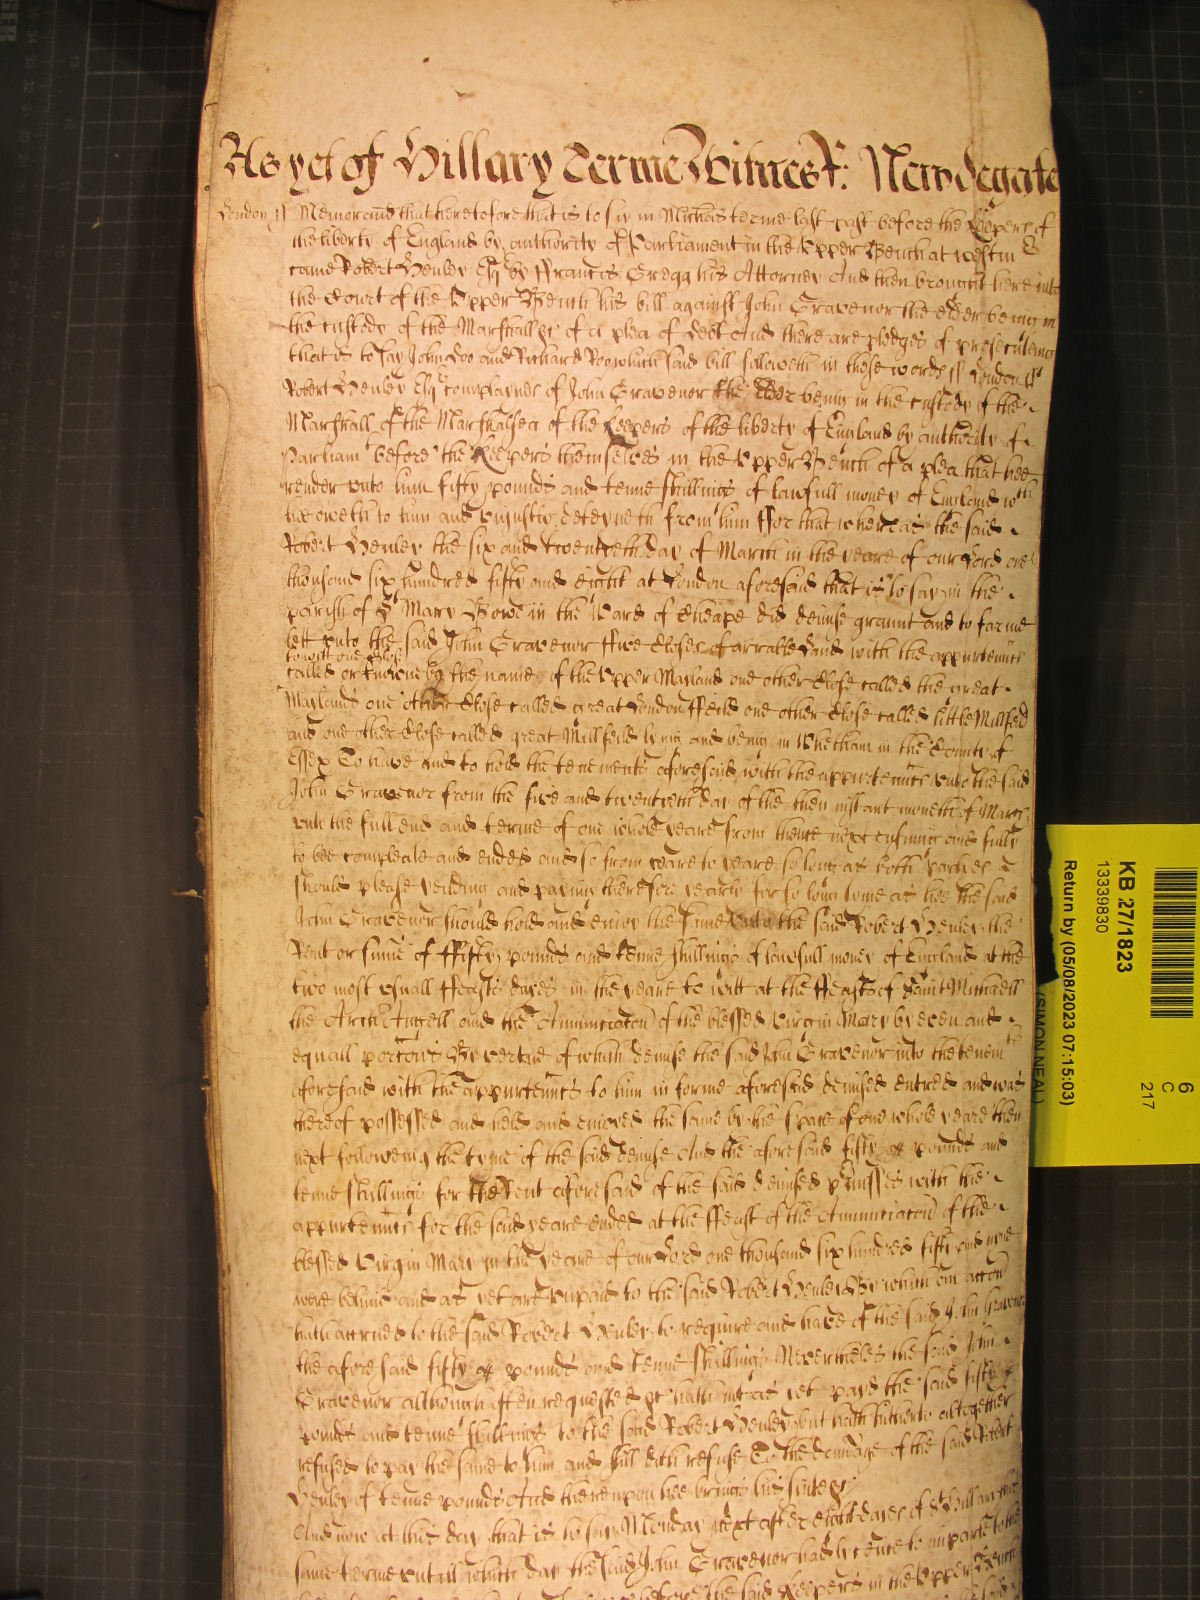 As yet of Hillary Terme Witnes R: Newdegate
London ss Memorand that heretofore that is to say in Michas terme last past before the Keepers of
the liberty of England by authority of Parliament in the Upper Bench at Westm
came Robert Henley Esq by Francis Gregg his Attorney And then brought here into
the Court of the Upper Bench his bill against John Gravenor the elder being in
the custody of the Marshall &c of a plea of debt And there are pledges of prosecuteing
that is to say John Doo and Richard Roo which said bill followeth in these words ss London ss
Robert Henley Esq complaynes of John Gravenor the elder being in the custody of the
Marshall of the Marshalsea of the Keepers of the liberty of England by authority of
Parliam before the Keepers themselves in the Upper Bench of a plea that hee
render unto him fifty pounds and tenne shillings of lawfull money of England wch
hee oweth to him and uniustly deteyneth from him For that whereas the said
Robert Henley the six and twentyeth day of March in the yeare of our Lord one
thousand six hundred fifty and eight at London aforesaid that is to say in the
parish of St Mary Bowe in the Ward of Cheape did demise graunt and to farme
lett unto the said John Gravenor Five Closes of arrable land with the appurtennces
to witt one Close
called or knowne by the name of the Upper Mayland one other Close called the great
Maylands one other Close called great London Feild one other Close called little Millfeild
and one other Close called great Millfeild lying and being in Whetham in the County of
Essex To have and to hold the tenements aforesaid with the appurtennces unto the said
John Gravenor from the five and twentyeth day of the then instant moneth of March
untill the full end and terme of one whole yeare from thence next ensuing and fully
to bee compleate and ended and so from yeare to yeare so long as both parties
should please yeilding and paying therefore yearly for so long tyme as hee the said
John Gravenor should hold and enioy the same unto the said Robert Henley the
Rent or summe of Fifty pounds and tenne shillings of lawfull money of England at the
two most usuall Feasts dayes in the yeare to witt at the Feasts of Saint Michaell
the Arch Angell and the Annunciacon of the blessed Virgin Mary by even and
equall porcons By vertue of which demise the said John Gravenor into the tenemts
aforesaid with the appurtennces to him in forme aforesaid demised entred and was
thereof possessed and held and enioyed the same by the space of one whole yeare then
next following the tyme of the said demise And the aforesaid fifty pounds and
tenne shillings for the Rent aforesaid of the said demised premisses with the
appurtennces for the said yeare ended at the Feast of the Annunciacon of the
blessed Virgin Mary in the yeare of our Lord one thousand six hundred fifty and nine
were behind and as yet are unpaid to the said Robert Henley By which an accon
hath accrued to the said Robert Henley to require and have of the said John Gravenor
the aforesaid fifty pounds and tenne shillings Neverthelesse the said John
Gravenor although often requested &c hath not as yet payd the said fifty
pounds and tenne shillings to the said Robert Henley but hath hitherto altogether
refused to pay the same to him and still doth refuse To the damage of the said Robert
Henley of tenne pounds And thereupon hee brings his suite &c
And now at this day that is to say Monday next after eight dayes of St Hillary this
same terme untill which day the said John Gravenor had lycence to imparle to the
before the said Keepers in the Upper Bench
KB 27/1823
13339830
Return by (05/08/2023 07:15:03)
(SIMON NEAL)
6
C
217